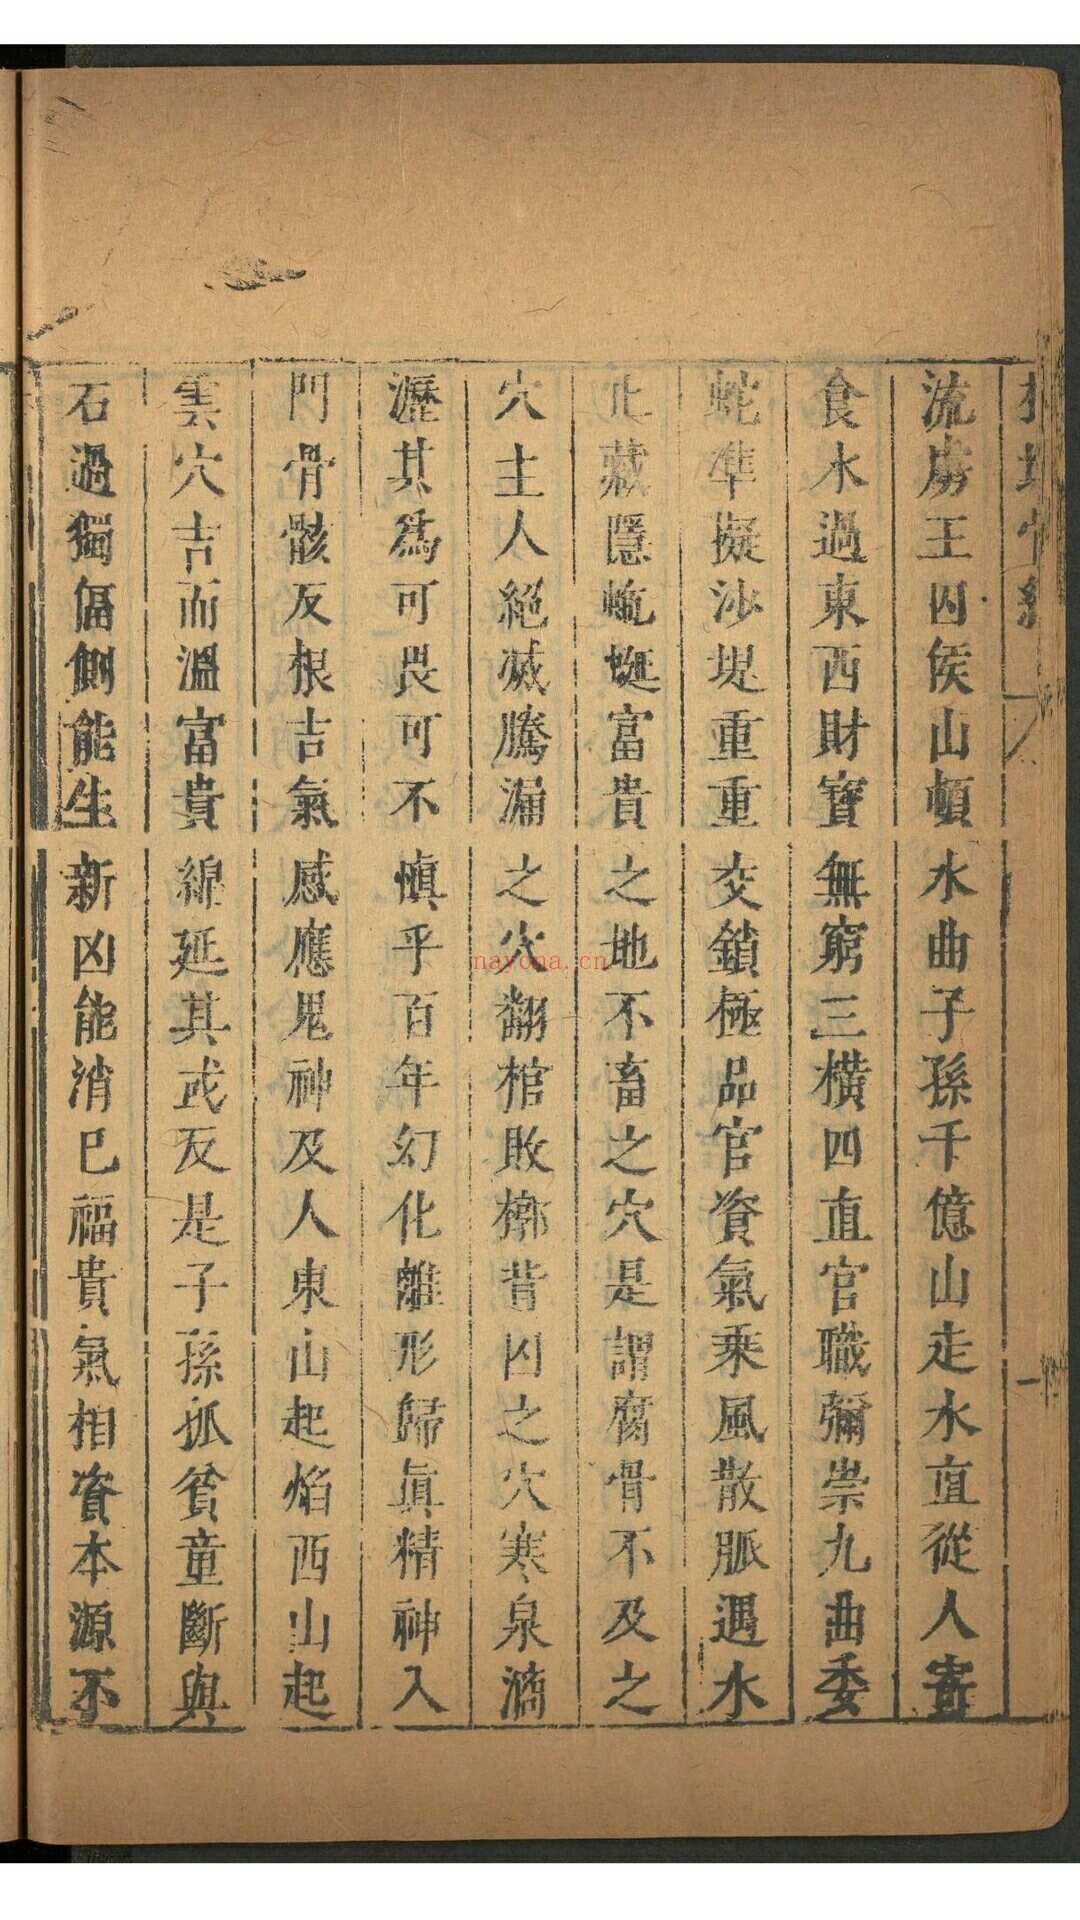 流虜王囚侯山頓水曲子孫千億山走水直從人寄
食水過東西財寶無窮三橫四直官職彌崇九曲委
蛇準擬沙堤重重交鎖極品官資氣乘風散脈遇水
止藏隱蜿蜒富貴之地不畜之穴是謂腐骨不及之
穴主人絕滅騰漏之穴翻棺敗槨背囚之穴寒泉滴
瀝其為可畏可不慎乎百年幻化離形歸眞精神入
門骨骸反根吉氣感應鬼神及人東山起焰西山起
雲穴吉而溫富貴綿延其或反是子孫孤貧童斷與
石過獨偪側能生新凶能消巳福貴氣相資本源不
nayona.cn